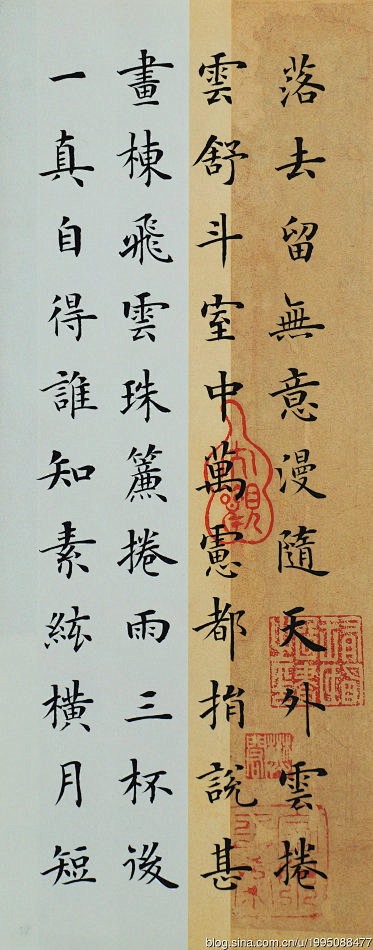 落去留無意漫隨天外雲捲
雲舒斗室中萬慮都捐說甚
畫棟飛雲珠簾捲雨三杯後
一真自得誰知素絃橫月短
blog.sina.com.cn/u/1995088477